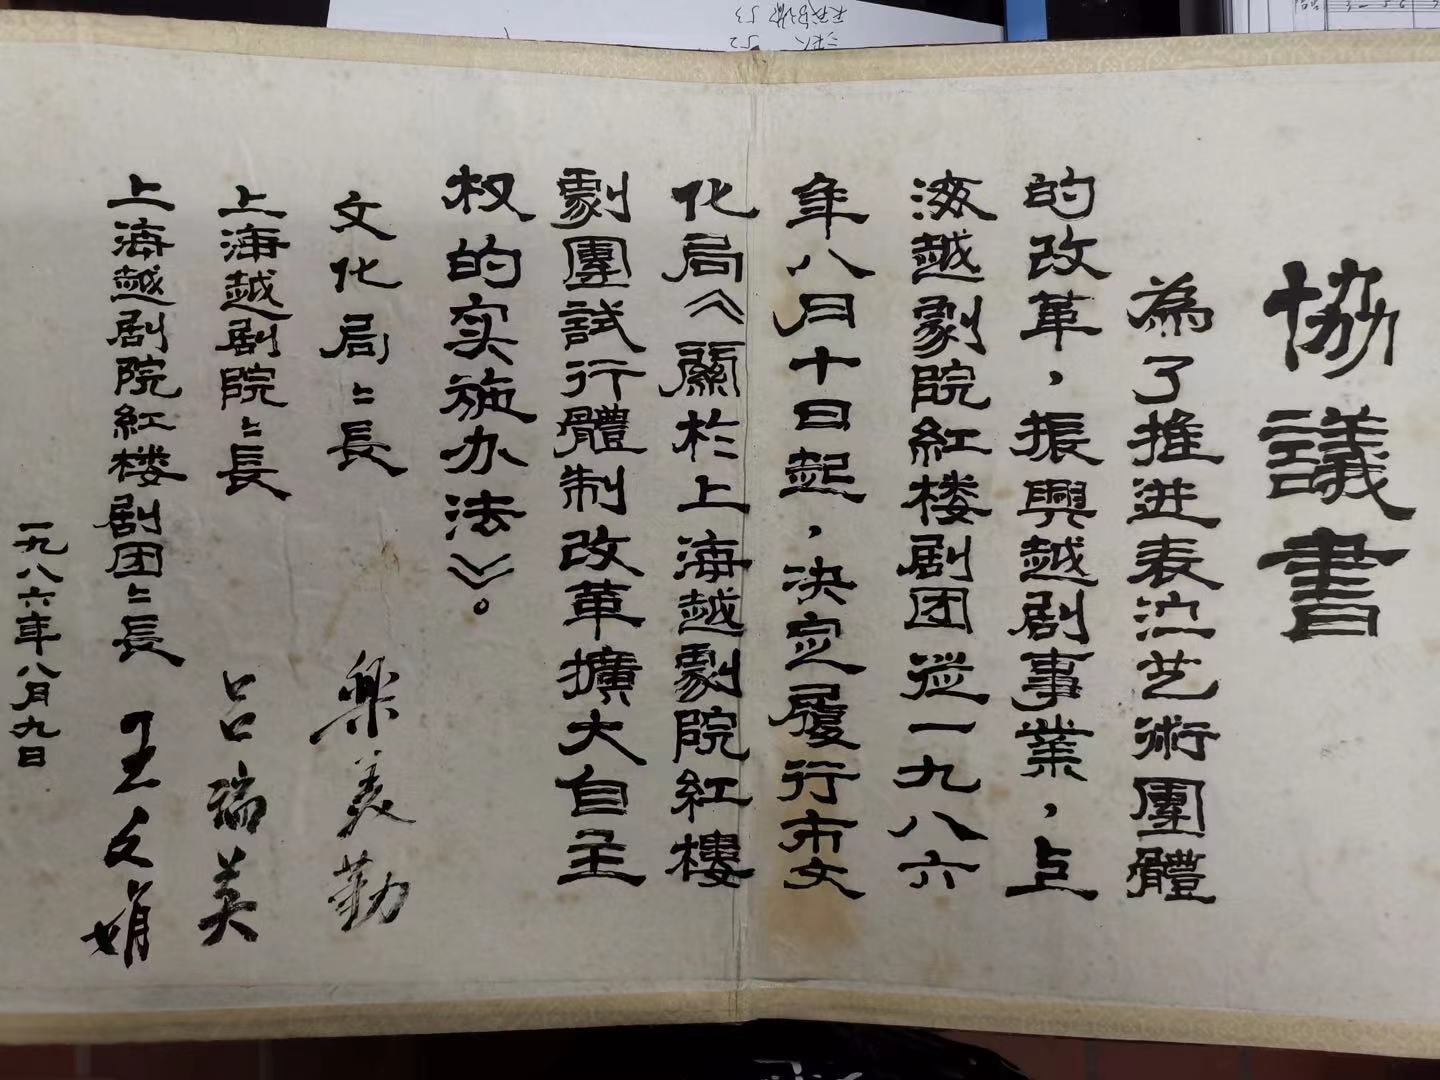 協議書
為了推进表演艺術團體
的改革，振興越剧事業，上
海越劇院紅楼剧团从一九八六
年八月十日起，决定履行市文
化局《關於上海越劇院紅樓
劇團試行體制改革擴大自主
权的实施办法》。
文化局〻長 樂美勤
上海越剧院〻長 吕瑞英
上海越剧院紅楼剧团〻長 王文娟
一九八六年八月九日